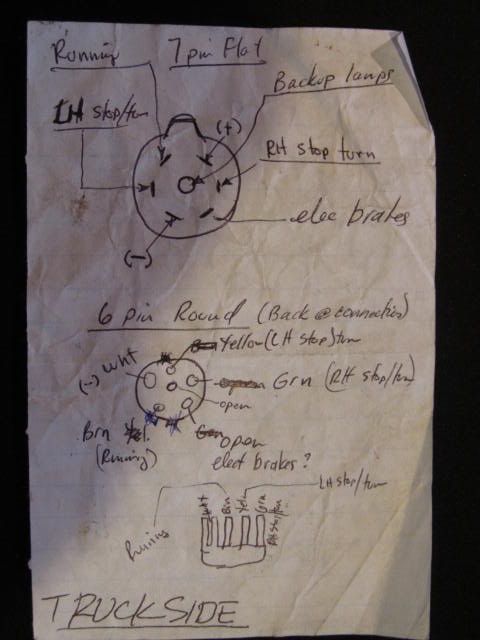 Running 7 pin Flat
Backup lamps
LH stop/turn
(+)
RH stop turn
elec brakes
(-)
6 pin Round (Back @ connection)
Yellow (LH stop) turn
(-) Wht
Grn (RH stop/turn)
open
Brn
(Running)
open
elect brakes?
LH stop/turn
Wht
Brn
Yelw
Grn
RH stop/turn
Running
TRUCKSIDE